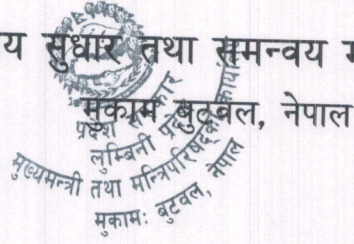 य सुधार तथा समन्वय म
मुकाम बुटवल, नेपाल
प्रदेश सरकार
लुम्बिनी प्रदेश
मुख्यमन्त्री तथा मन्त्रिपरिषद्को कार्यालय
मुकामः बुटवल, नेपाल